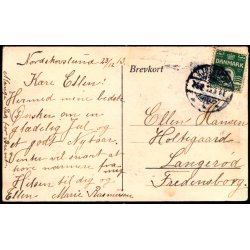 Nordskovslund 23/12 13
Brevkort
DANMARK
Kære Ellen!
Hermed mine bedste
Ønsker om en
glædelig Jul og
et godt Nytaar.
Venter vel snart at
høre nærmere fra
Hilsen til dig og
Ellen Marie Rasmussen
Ellen Hansen
Holtegaard
Langerød
Fredensborg